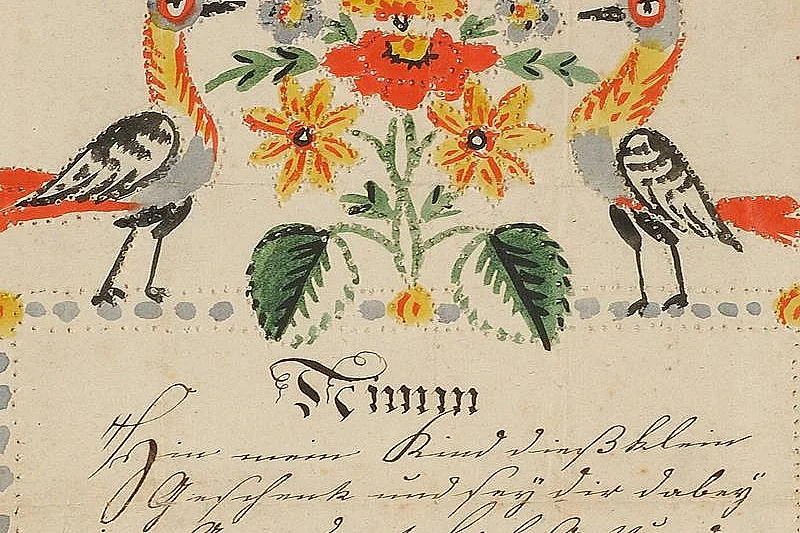 Nimm
Hin mein Kind dieß klein
Geschenk und seÿ dir dabeÿ